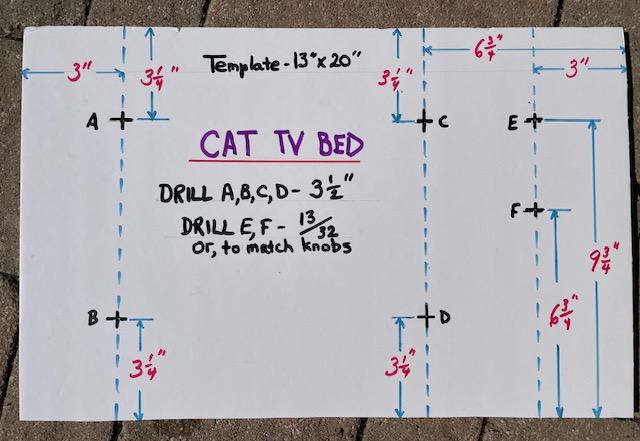 Template - 13" x 20"
6 3/4"
3"
3 1/4"
3 1/4"
3"
A
C
E
CAT TV BED
DRILL A,B,C,D - 3 1/2"
DRILL E, F - 13/32
or, to match knobs
F
9 3/4"
6 3/4"
B
D
3 1/4"
3 1/4"